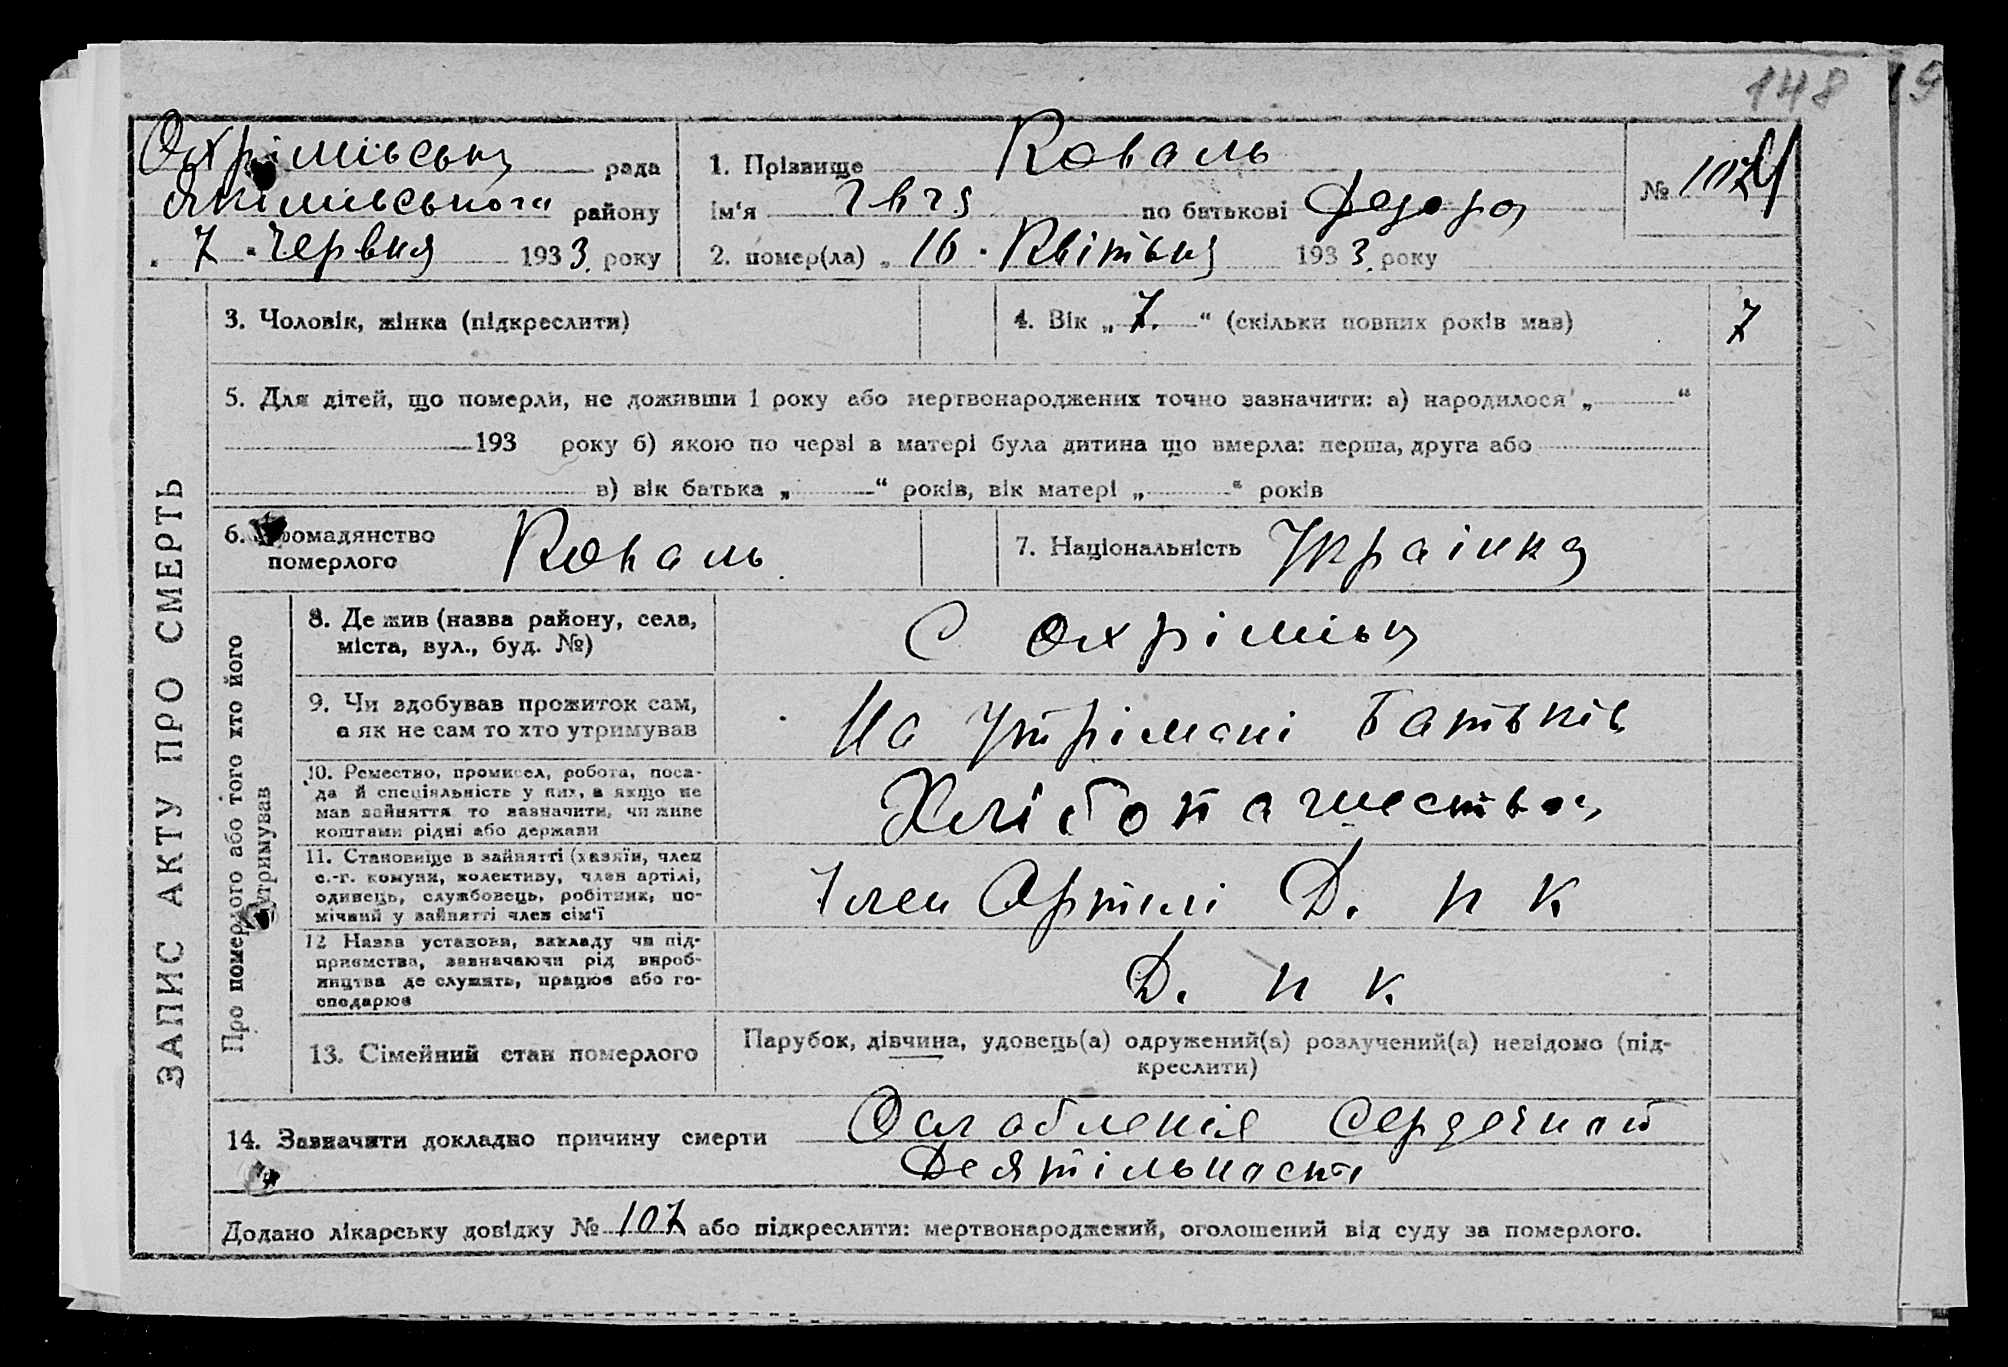 148
Охрімівська рада
Якимівського району
" 7 " Червня 1933 року
1. Прізвище Коваль
ім'я по батькові Федора
2. помер(ла) „ 16 " Квітьня 1933 року
№ 107
ЗАПИС АКТУ ПРО СМЕРТЬ
3. Чоловік, жінка (підкреслити)
4. Вік „ 7. “ (скільки повних років мав)
7
5. Для дітей, що померли, не доживши 1 року або мертвонароджених точно зазначити: а) народилося „ “
193 року б) якою по черзі в матері була дитина що вмерла: перша, друга або
в) вік батька „ “ років, вік матері „ “ років
6. Громадянство
померлого Коваль
7. Національність Украінка
Про померлого або того хто його
утримував
8. Де жив (назва району, села,
міста, вул., буд. №)
С Охрімівка
9. Чи здобував прожиток сам,
а як не сам то хто утримував
На Утрімані Батьків
10. Ремество, промисел, робота, поса-
да й спеціяльність у них, а якщо не
мав зайняття то зазначити, чи живе
коштами рідні або держави
Хлібопашество
11. Становище в зайнятті (хазяїн, член
с.-г. комуни, колективу, член артілі,
одинець, службовець, робітник, по-
мічний у зайнятті член сім'ї
Член Артілі Д. н к
12 Назва установи, закладу чи під-
приємства, зазначаючи рід вироб-
ництва де служить, працює або го-
сподарює
Д. н к.
13. Сімейний стан померлого
Парубок, дівчина, удовець(а) одружений(а) розлучений(а) невідомо (під-
креслити)
14. Зазначити докладно причину смерти Ослабленіе Сердечной
Деятільности
Додано лікарську довідку № 107 або підкреслити: мертвонароджений, оголошений від суду за померлого.